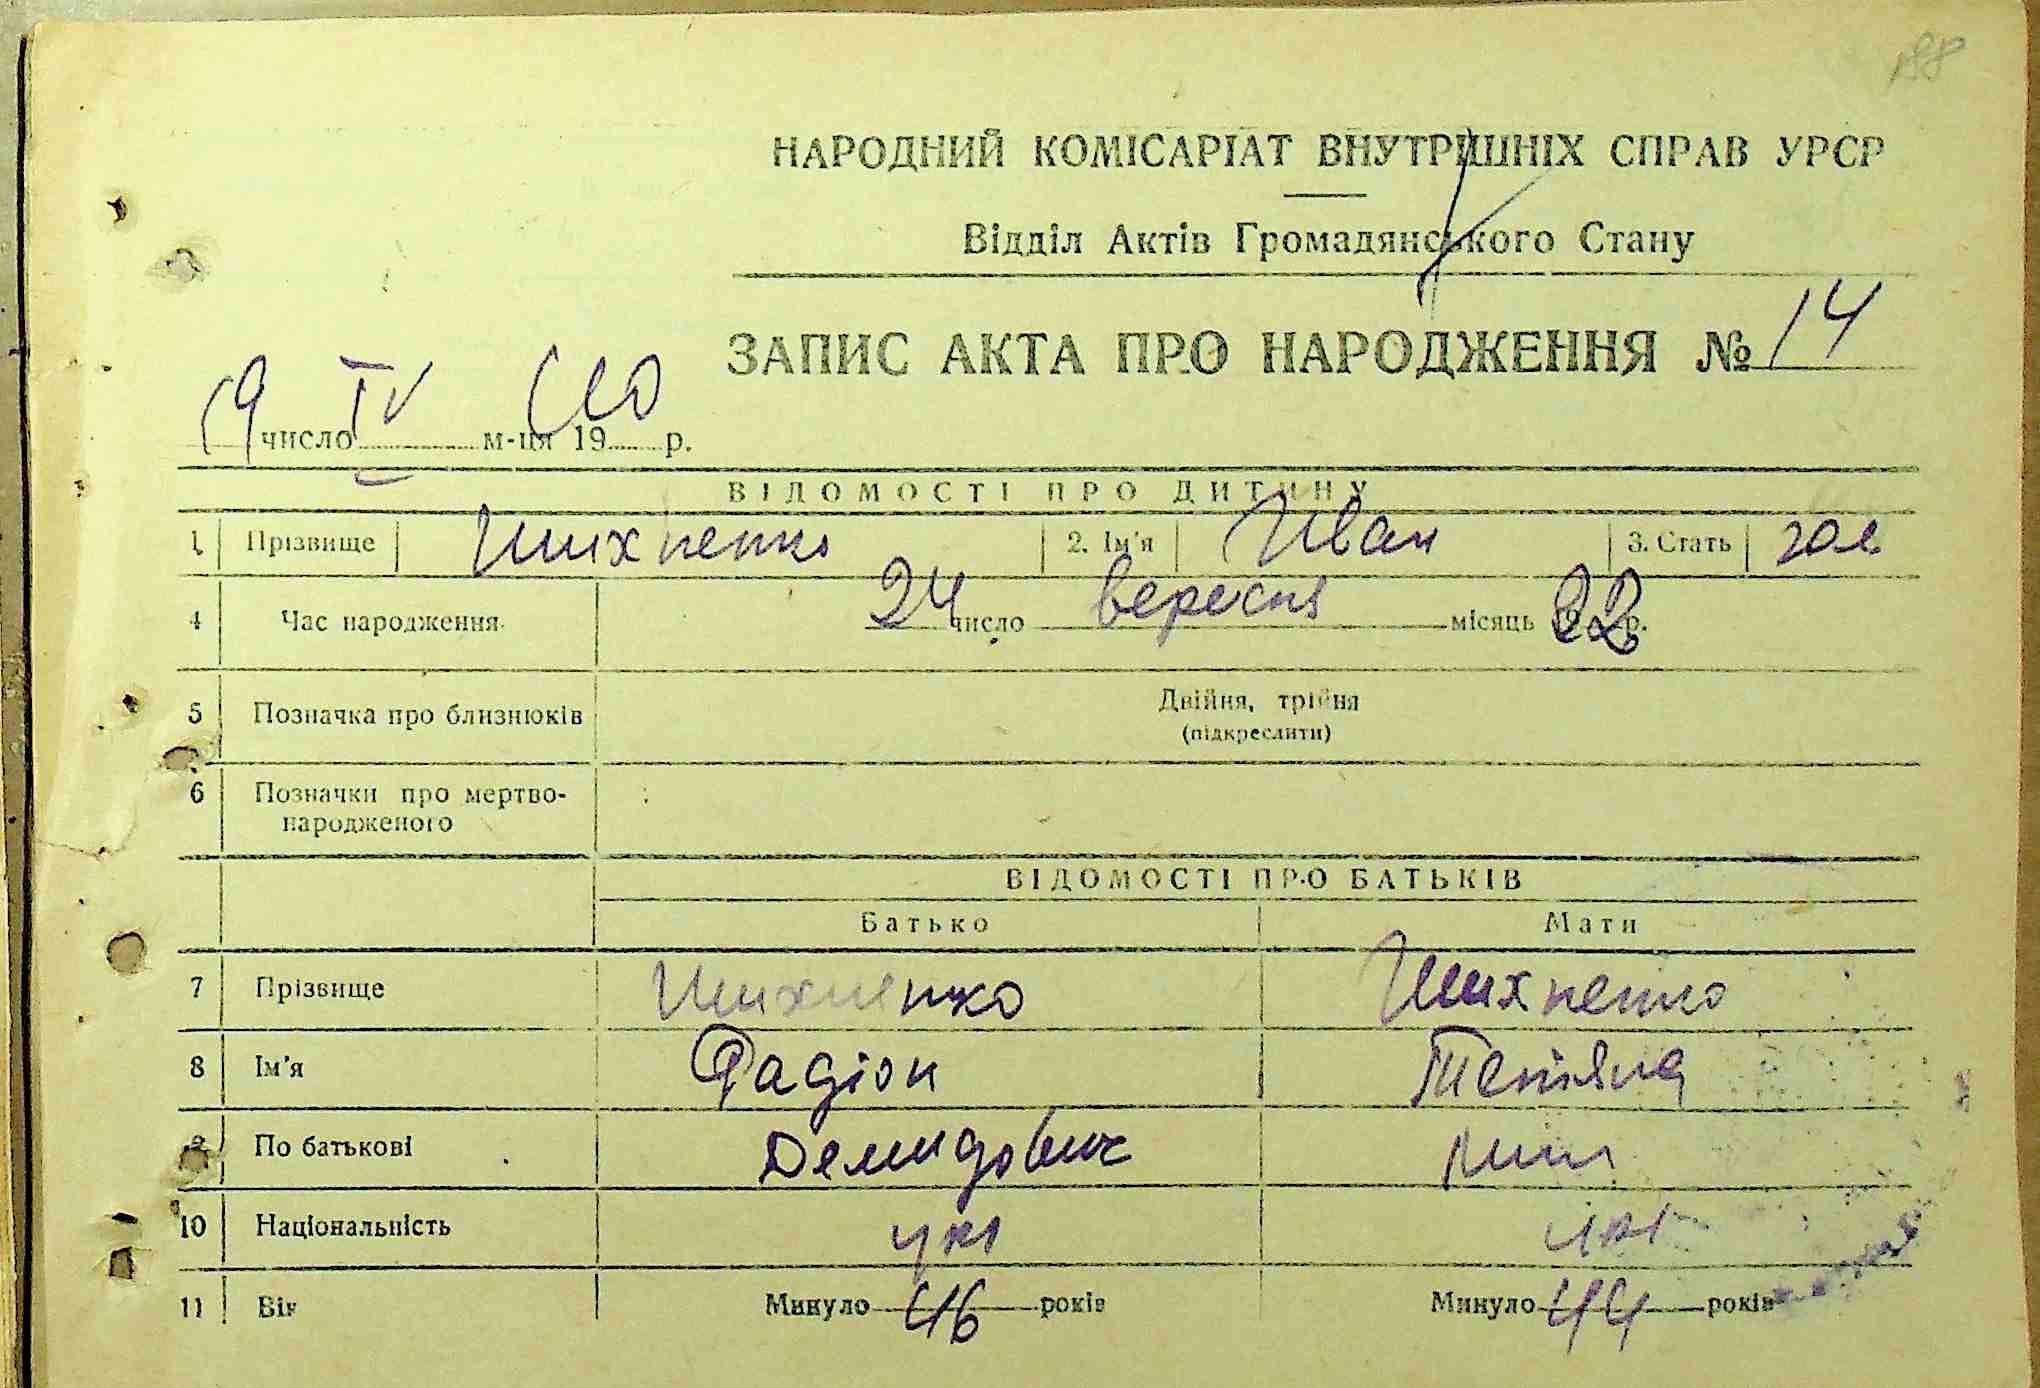 188
НАРОДНИЙ КОМІСАРІАТ ВНУТРІШНІХ СПРАВ УРСР
Відділ Актів Громадянського Стану
ЗАПИС АКТА ПРО НАРОДЖЕННЯ № 14
19 число IV м-ця 1940 р.
ВІДОМОСТІ ПРО ДИТИНУ
1 Прізвище Шихненко 2. Ім'я Иван 3. Стать чол
4 Час народження 24 число вересня місяць 1922 р.
5 Позначка про близнюків Двійня, трійня
(підкреслити)
6 Позначки про мертво-
народженого
ВІДОМОСТІ ПРО БАТЬКІВ
Батько Мати
7 Прізвище Шихненко Шихненко
8 Ім'я Радіон Тетяна
9 По батькові Демидович
10 Національність укр укр
11 Вік Минуло 46 років Минуло 44 років